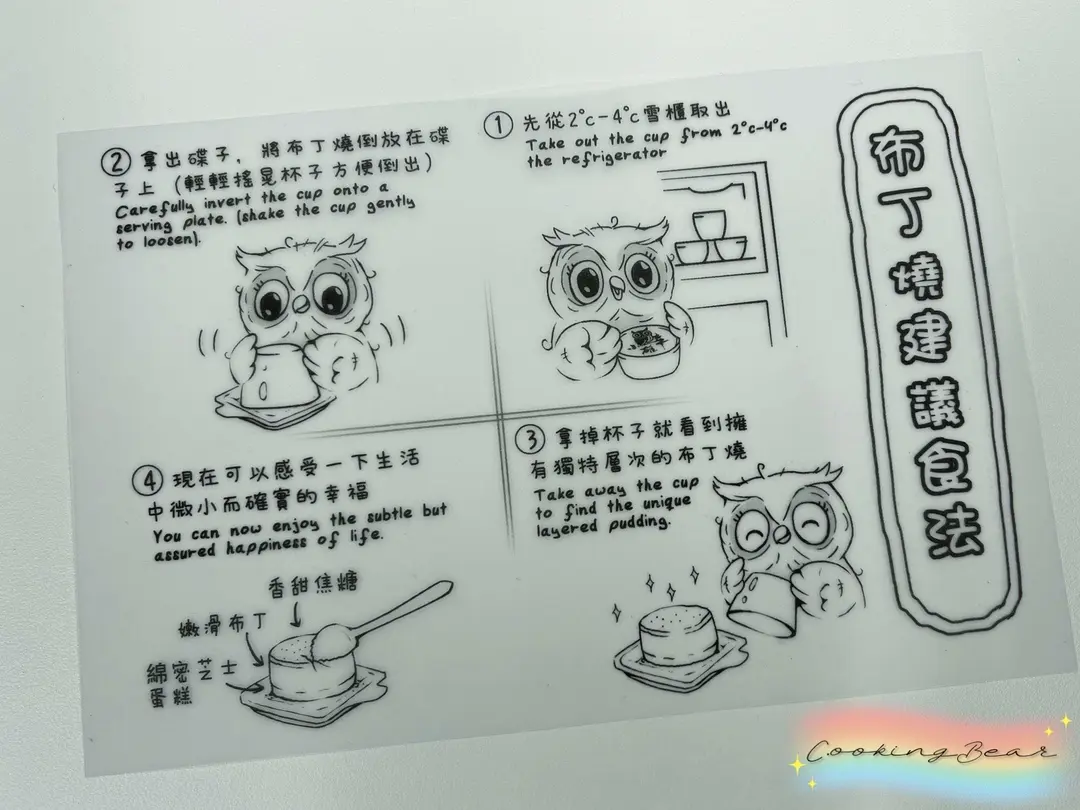 布丁燒建議食法
① 先從2°c-4°c雪櫃取出
Take out the cup from 2°c-4°c
the refrigerator
② 拿出碟子，將布丁燒倒放在碟
子上（輕輕搖晃杯子方便倒出）
Carefully invert the cup onto a
serving plate. (shake the cup gently
to loosen).
③ 拿掉杯子就看到擁
有獨特層次的布丁燒
Take away the cup
to find the unique
layered pudding.
④ 現在可以感受一下生活
中微小而確實的幸福
You can now enjoy the subtle but
assured happiness of life.
香甜焦糖
嫩滑布丁
綿密芝士
蛋糕
CookingBear